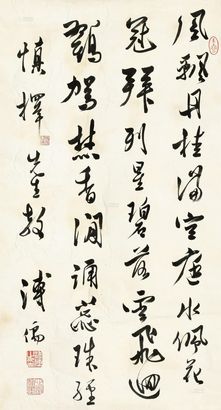 風飄丹桂滿空庭水佩花
冠拜列星碧落雲飛迴
鶴駕焚香閒誦蕊珠經
慎擇先生教 溥儒